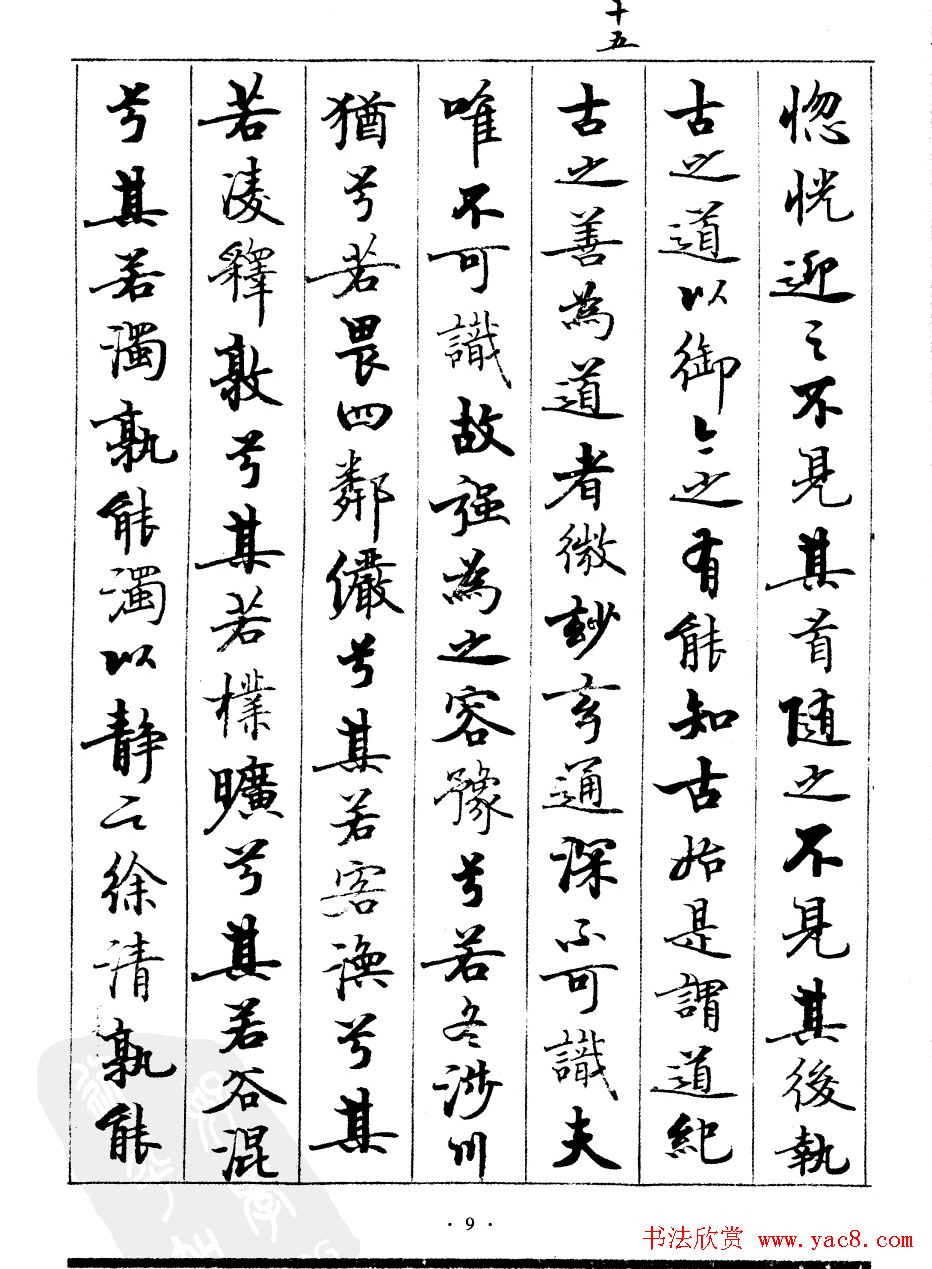 十五
惚恍迎之不見其首随之不見其後執
古之道以御今之有能知古始是謂道紀
古之善為道者微玅玄通深不可識夫
唯不可識故强為之容豫兮若冬涉川
猶兮若畏四鄰儼兮其若客渙兮其
若凌釋敦兮其若樸曠兮其若谷混
兮其若濁孰能濁以静之徐清孰能
· 9 ·
书法欣赏 www.yac8.com